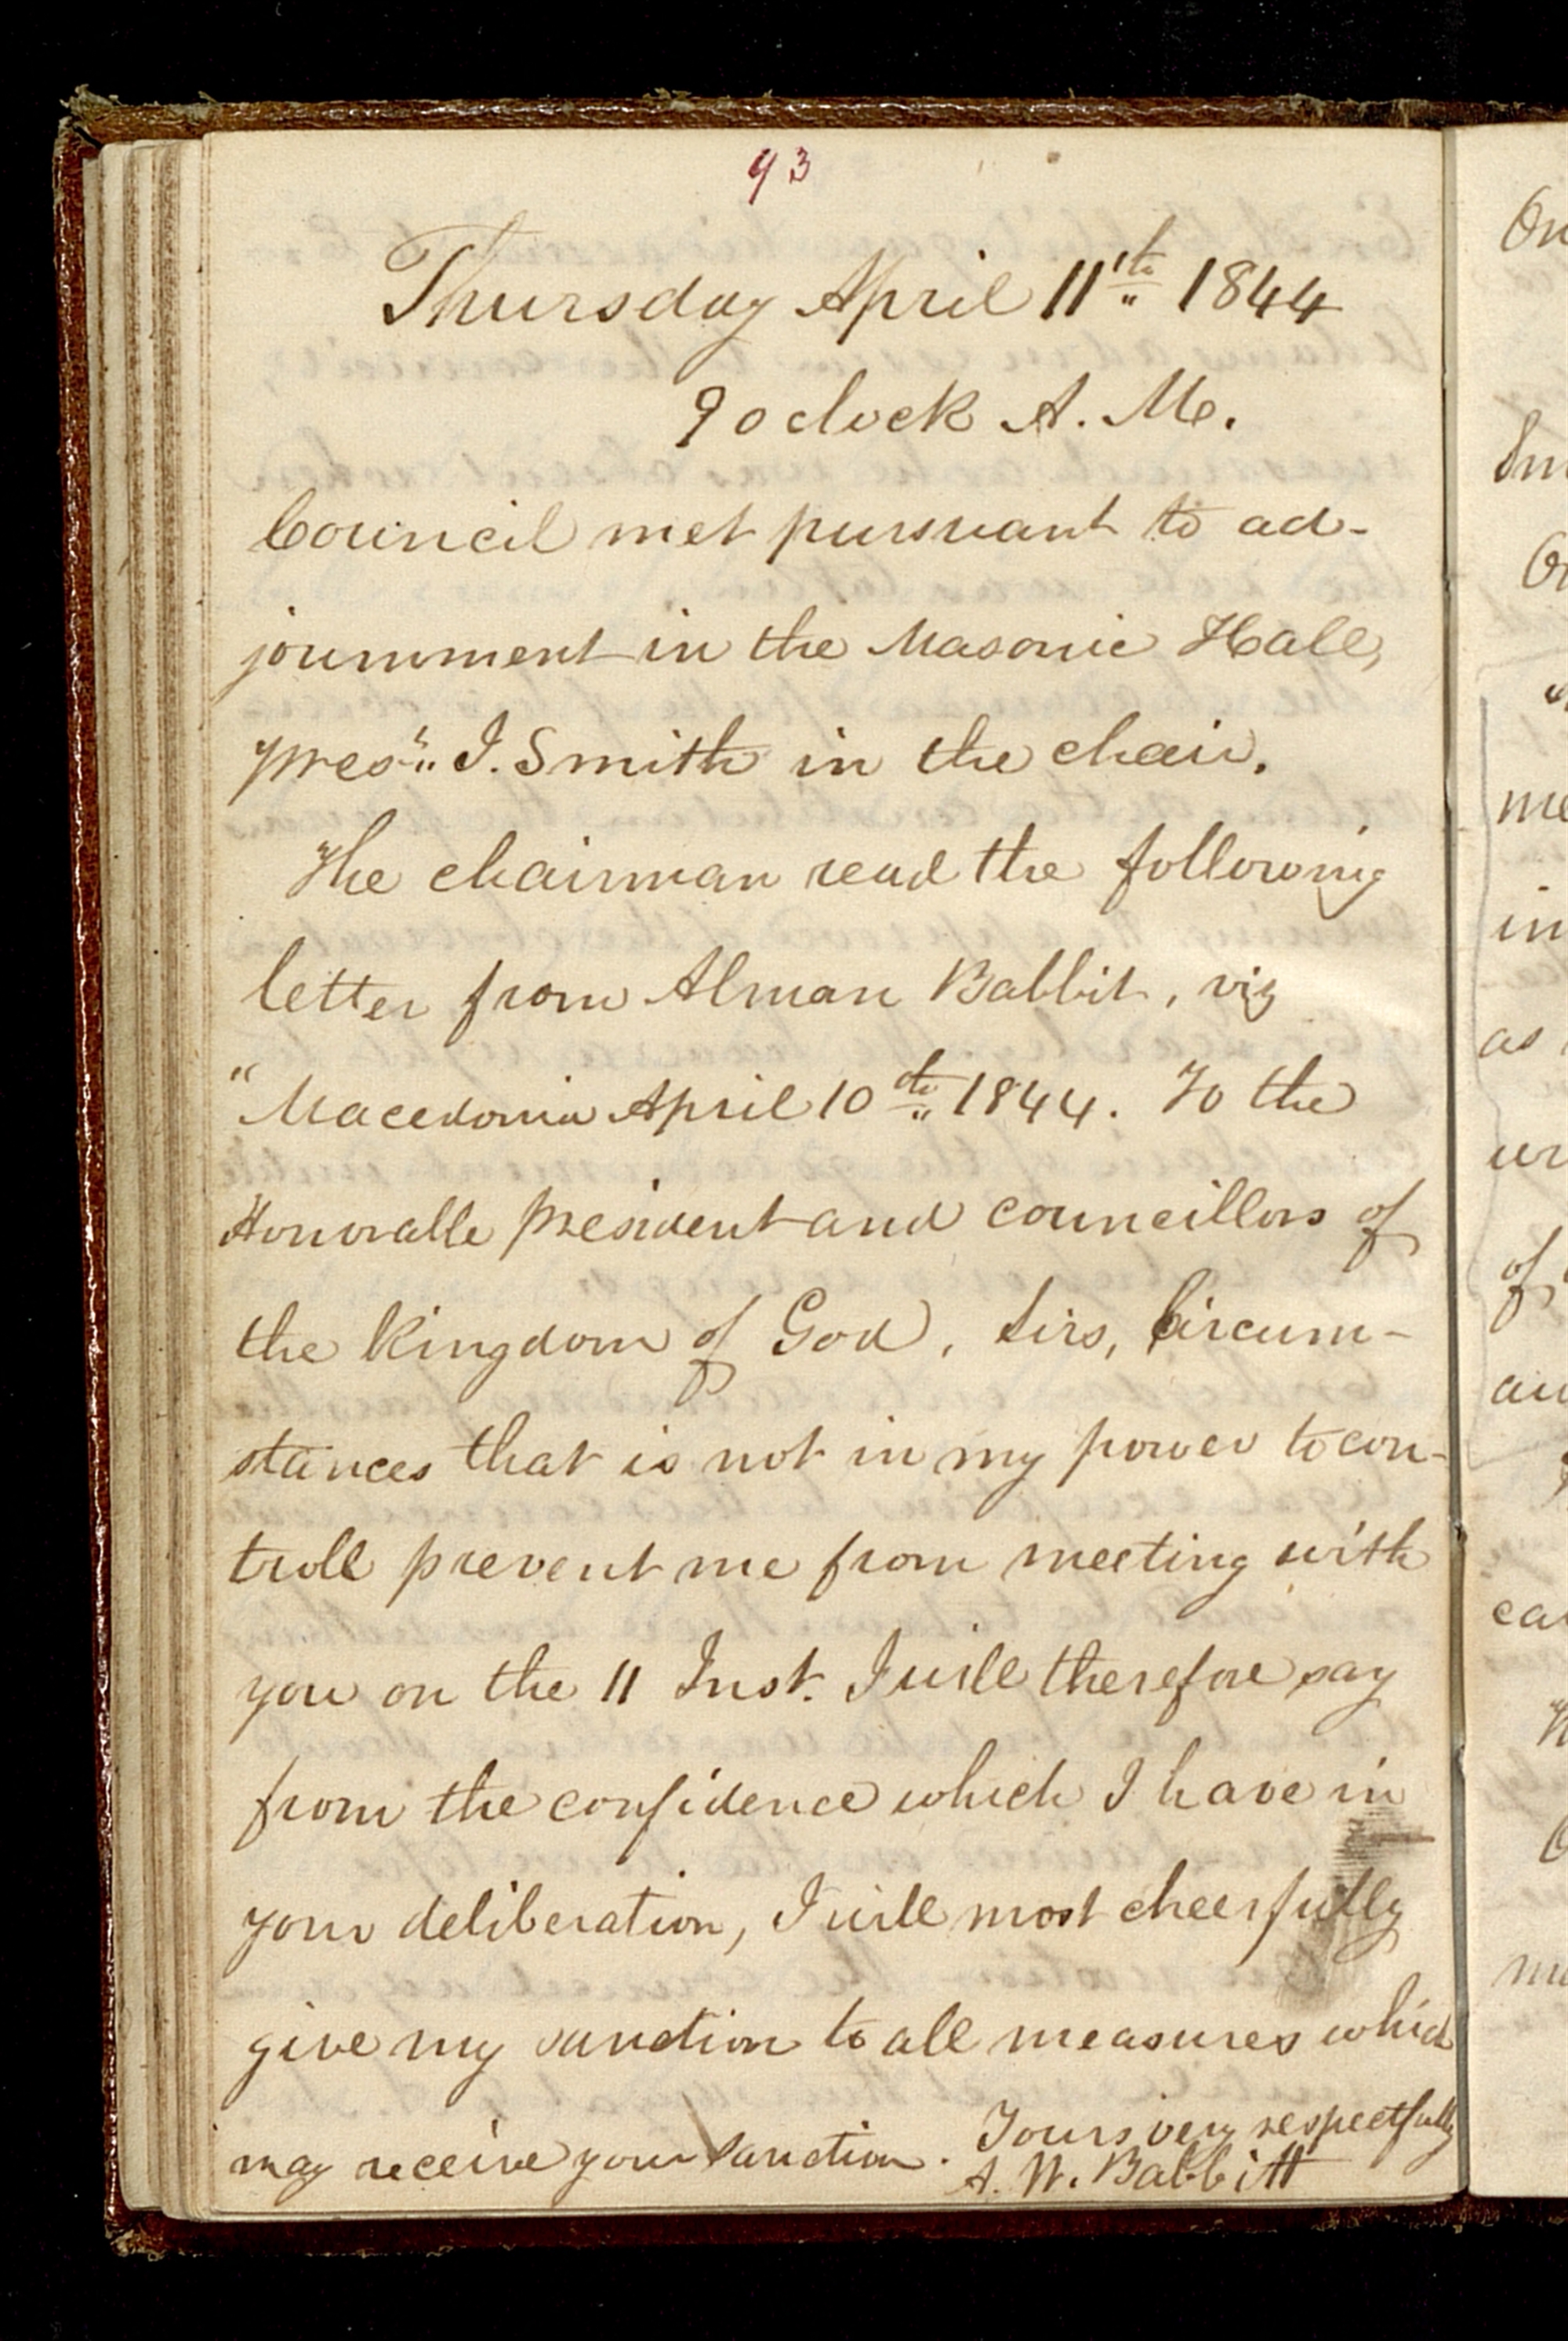 93
Thursday April 11th 1844
9 oclock A. M.
Council met pursuant to ad-
journment in the Masonic Hall,
pres.t J. Smith in the chair.
The chairman read the following
letter from Alman Babbit, viz
"Macedonia April 10th 1844. To the
Honorable president and councillors of
the kingdom of God, Sirs, Circum-
stances that is not in my power to con-
troll prevent me from meeting with
you on the 11 Inst. I will therefore say
from the confidence which I have in
your deliberation, I will most cheerfully
give my sanction to all measures which
may receive your sanction. Yours very respectfully
A. W. Babbitt
On
Or
me
in
as
of